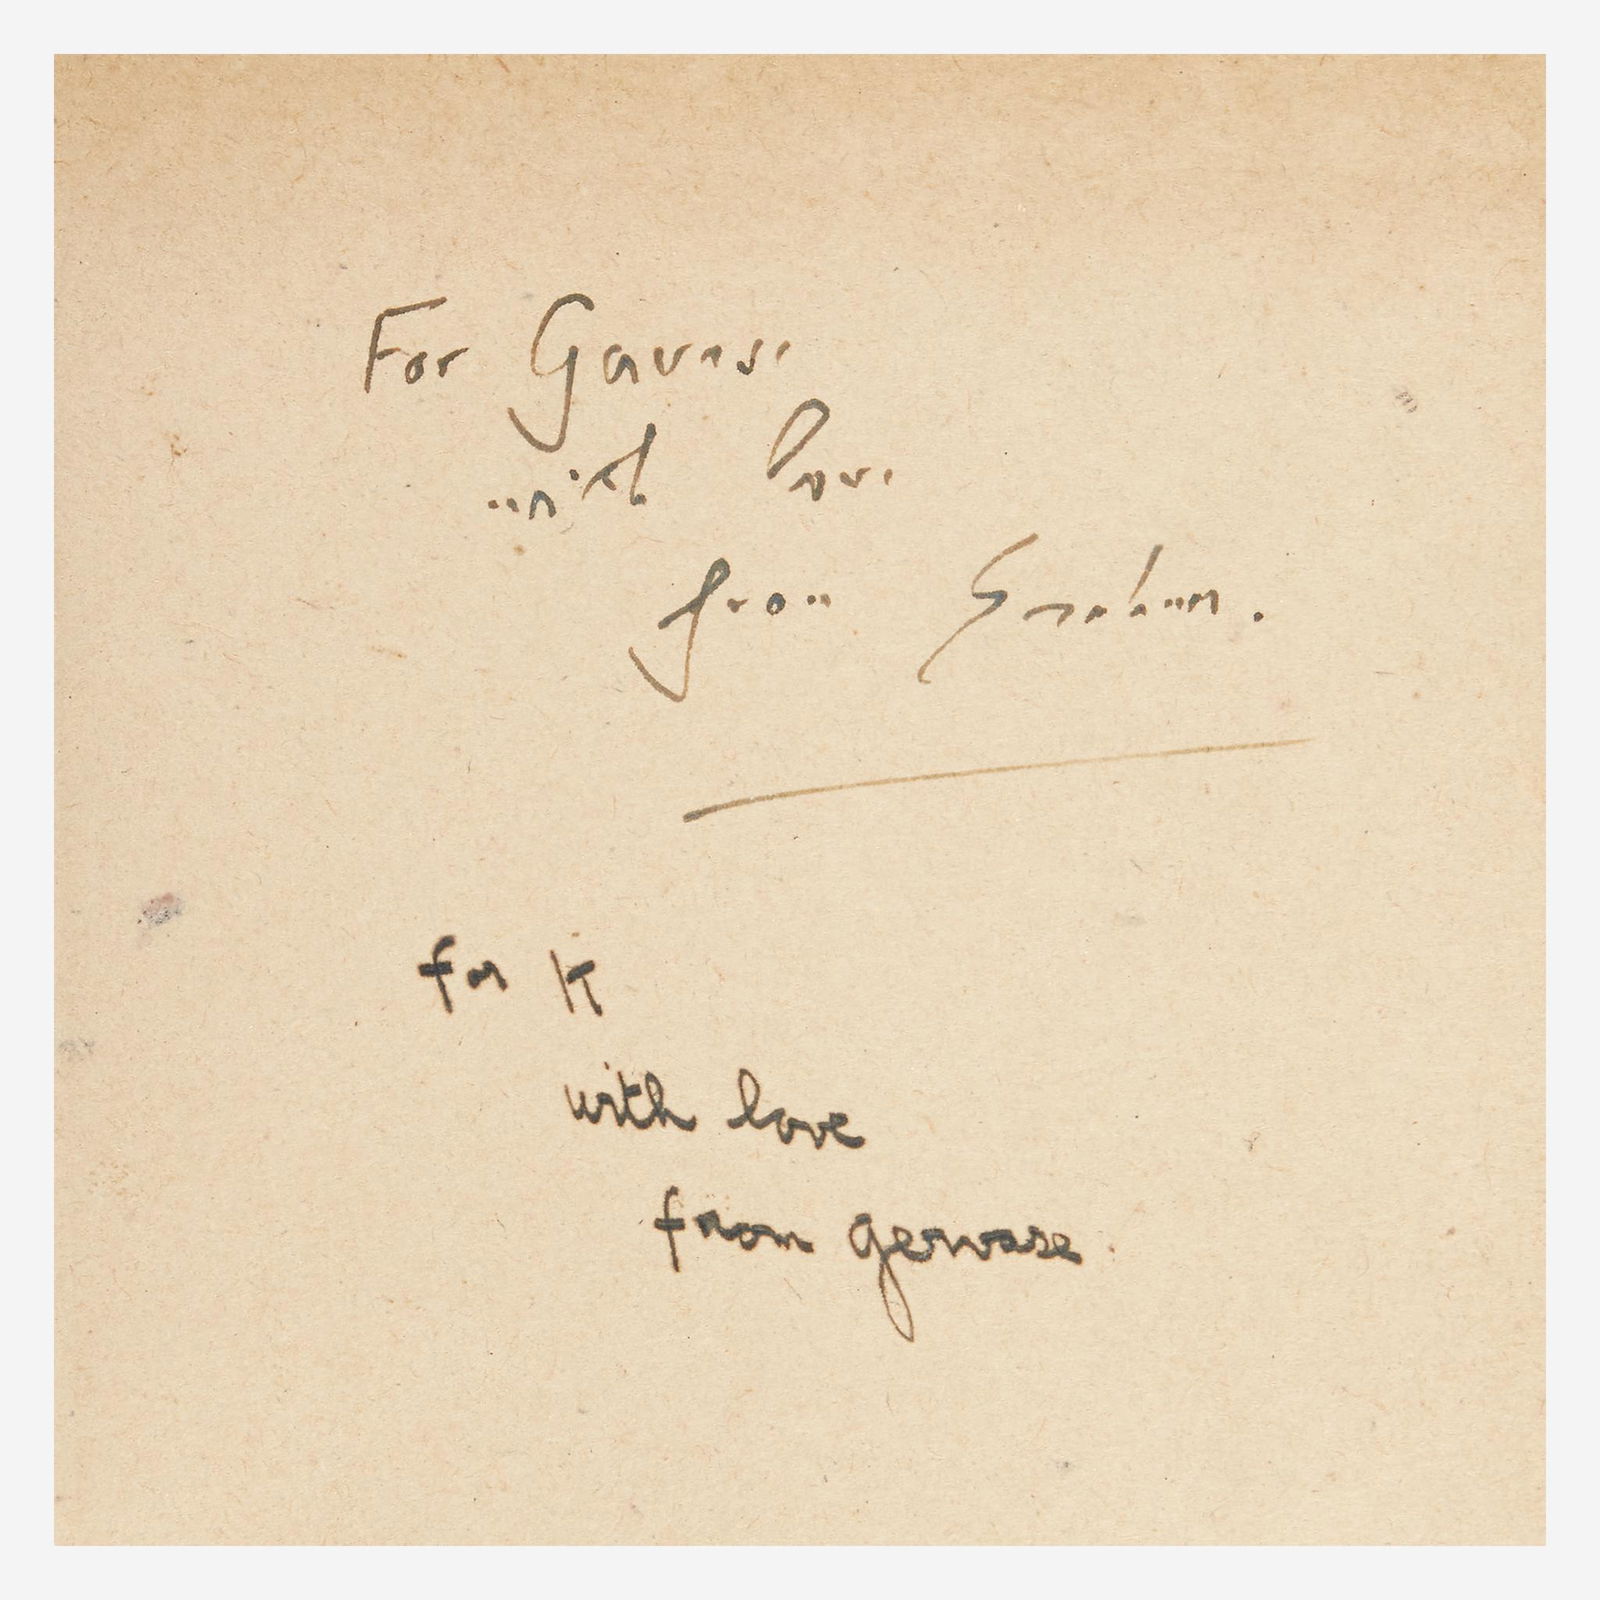 For Gervase
with love
from Graham.
for K
with love
from gervase